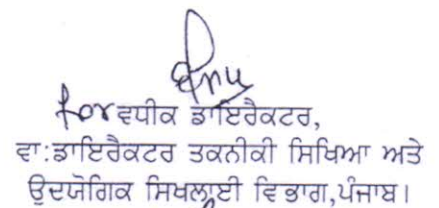 for ਵਧੀਕ ਡਾਇਰੈਕਟਰ,
ਵਾ:ਡਾਇਰੈਕਟਰ ਤਕਨੀਕੀ ਸਿਖਿਆ ਅਤੇ
ਉਦਯੋਗਿਕ ਸਿਖਲਾਈ ਵਿਭਾਗ,ਪੰਜਾਬ।